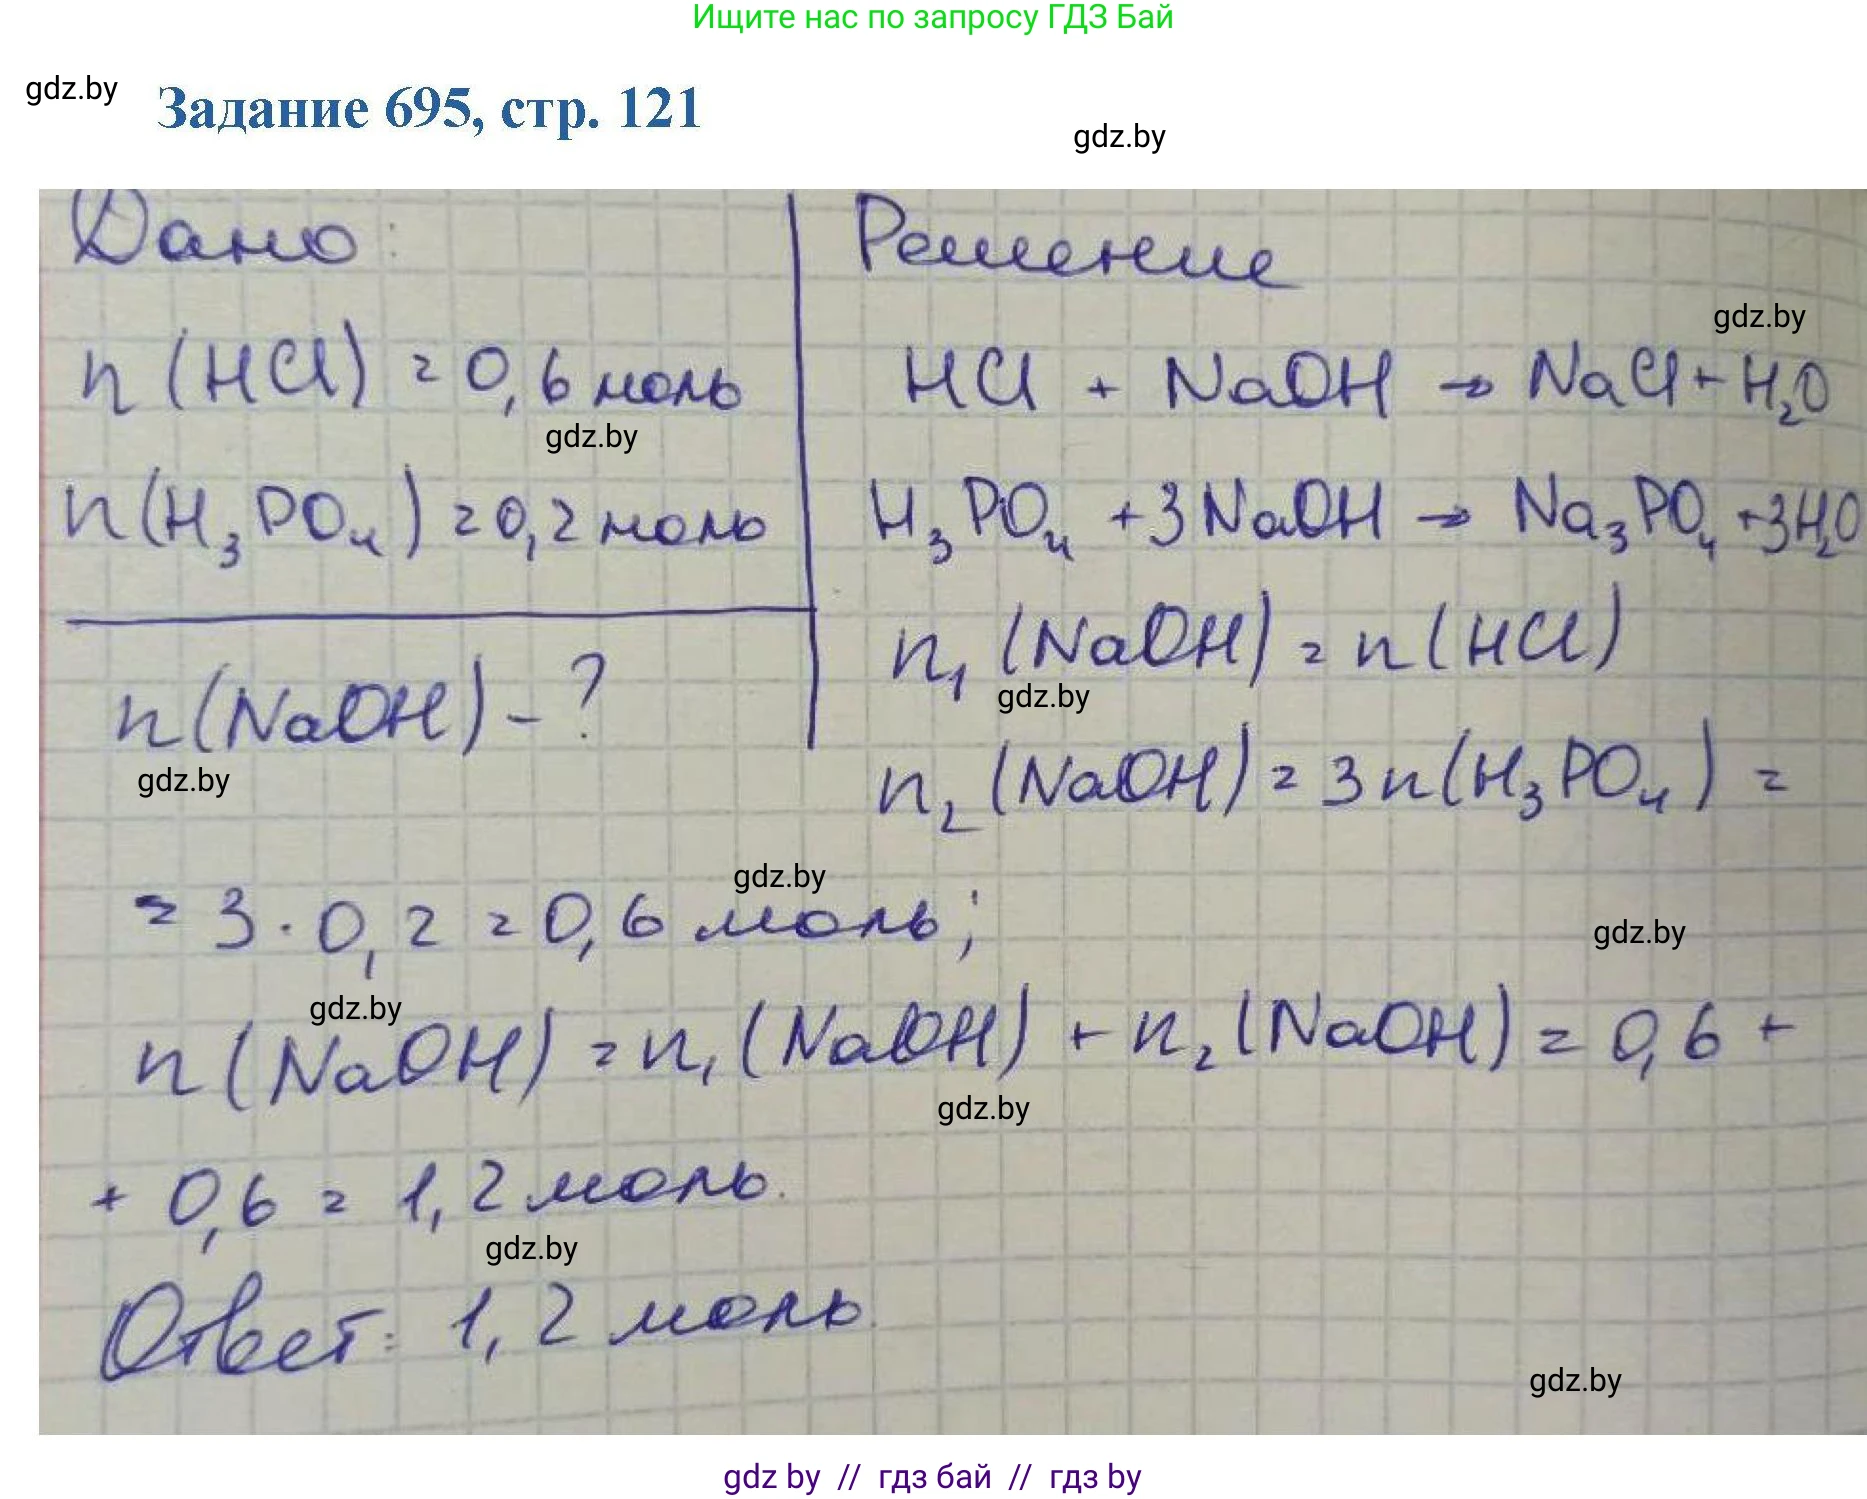 Ищите нас по запросу ГДЗ Бай
gdz.by
Задание 695, стр. 121
gdz.by
Дано:
n (HCl) = 0,6 моль
gdz.by
n(H₃PO₄) = 0,2 моль
n(NaOH) - ?
gdz.by
Решение
gdz.by
HCl + NaOH → NaCl + H₂O
H₃PO₄ + 3NaOH → Na₃PO₄ + 3H₂O
n₁ (NaOH) = n(HCl)
gdz.by
n₂ (NaOH) = 3n(H₃PO₄) =
gdz.by
= 3 · 0,2 = 0,6 моль;
gdz.by
gdz.by
n(NaOH) = n₁(NaOH) + n₂(NaOH) = 0,6 +
gdz.by
+ 0,6 = 1,2 моль.
gdz.by
Ответ: 1,2 моль.
gdz.by
gdz by // гдз бай // гдз by